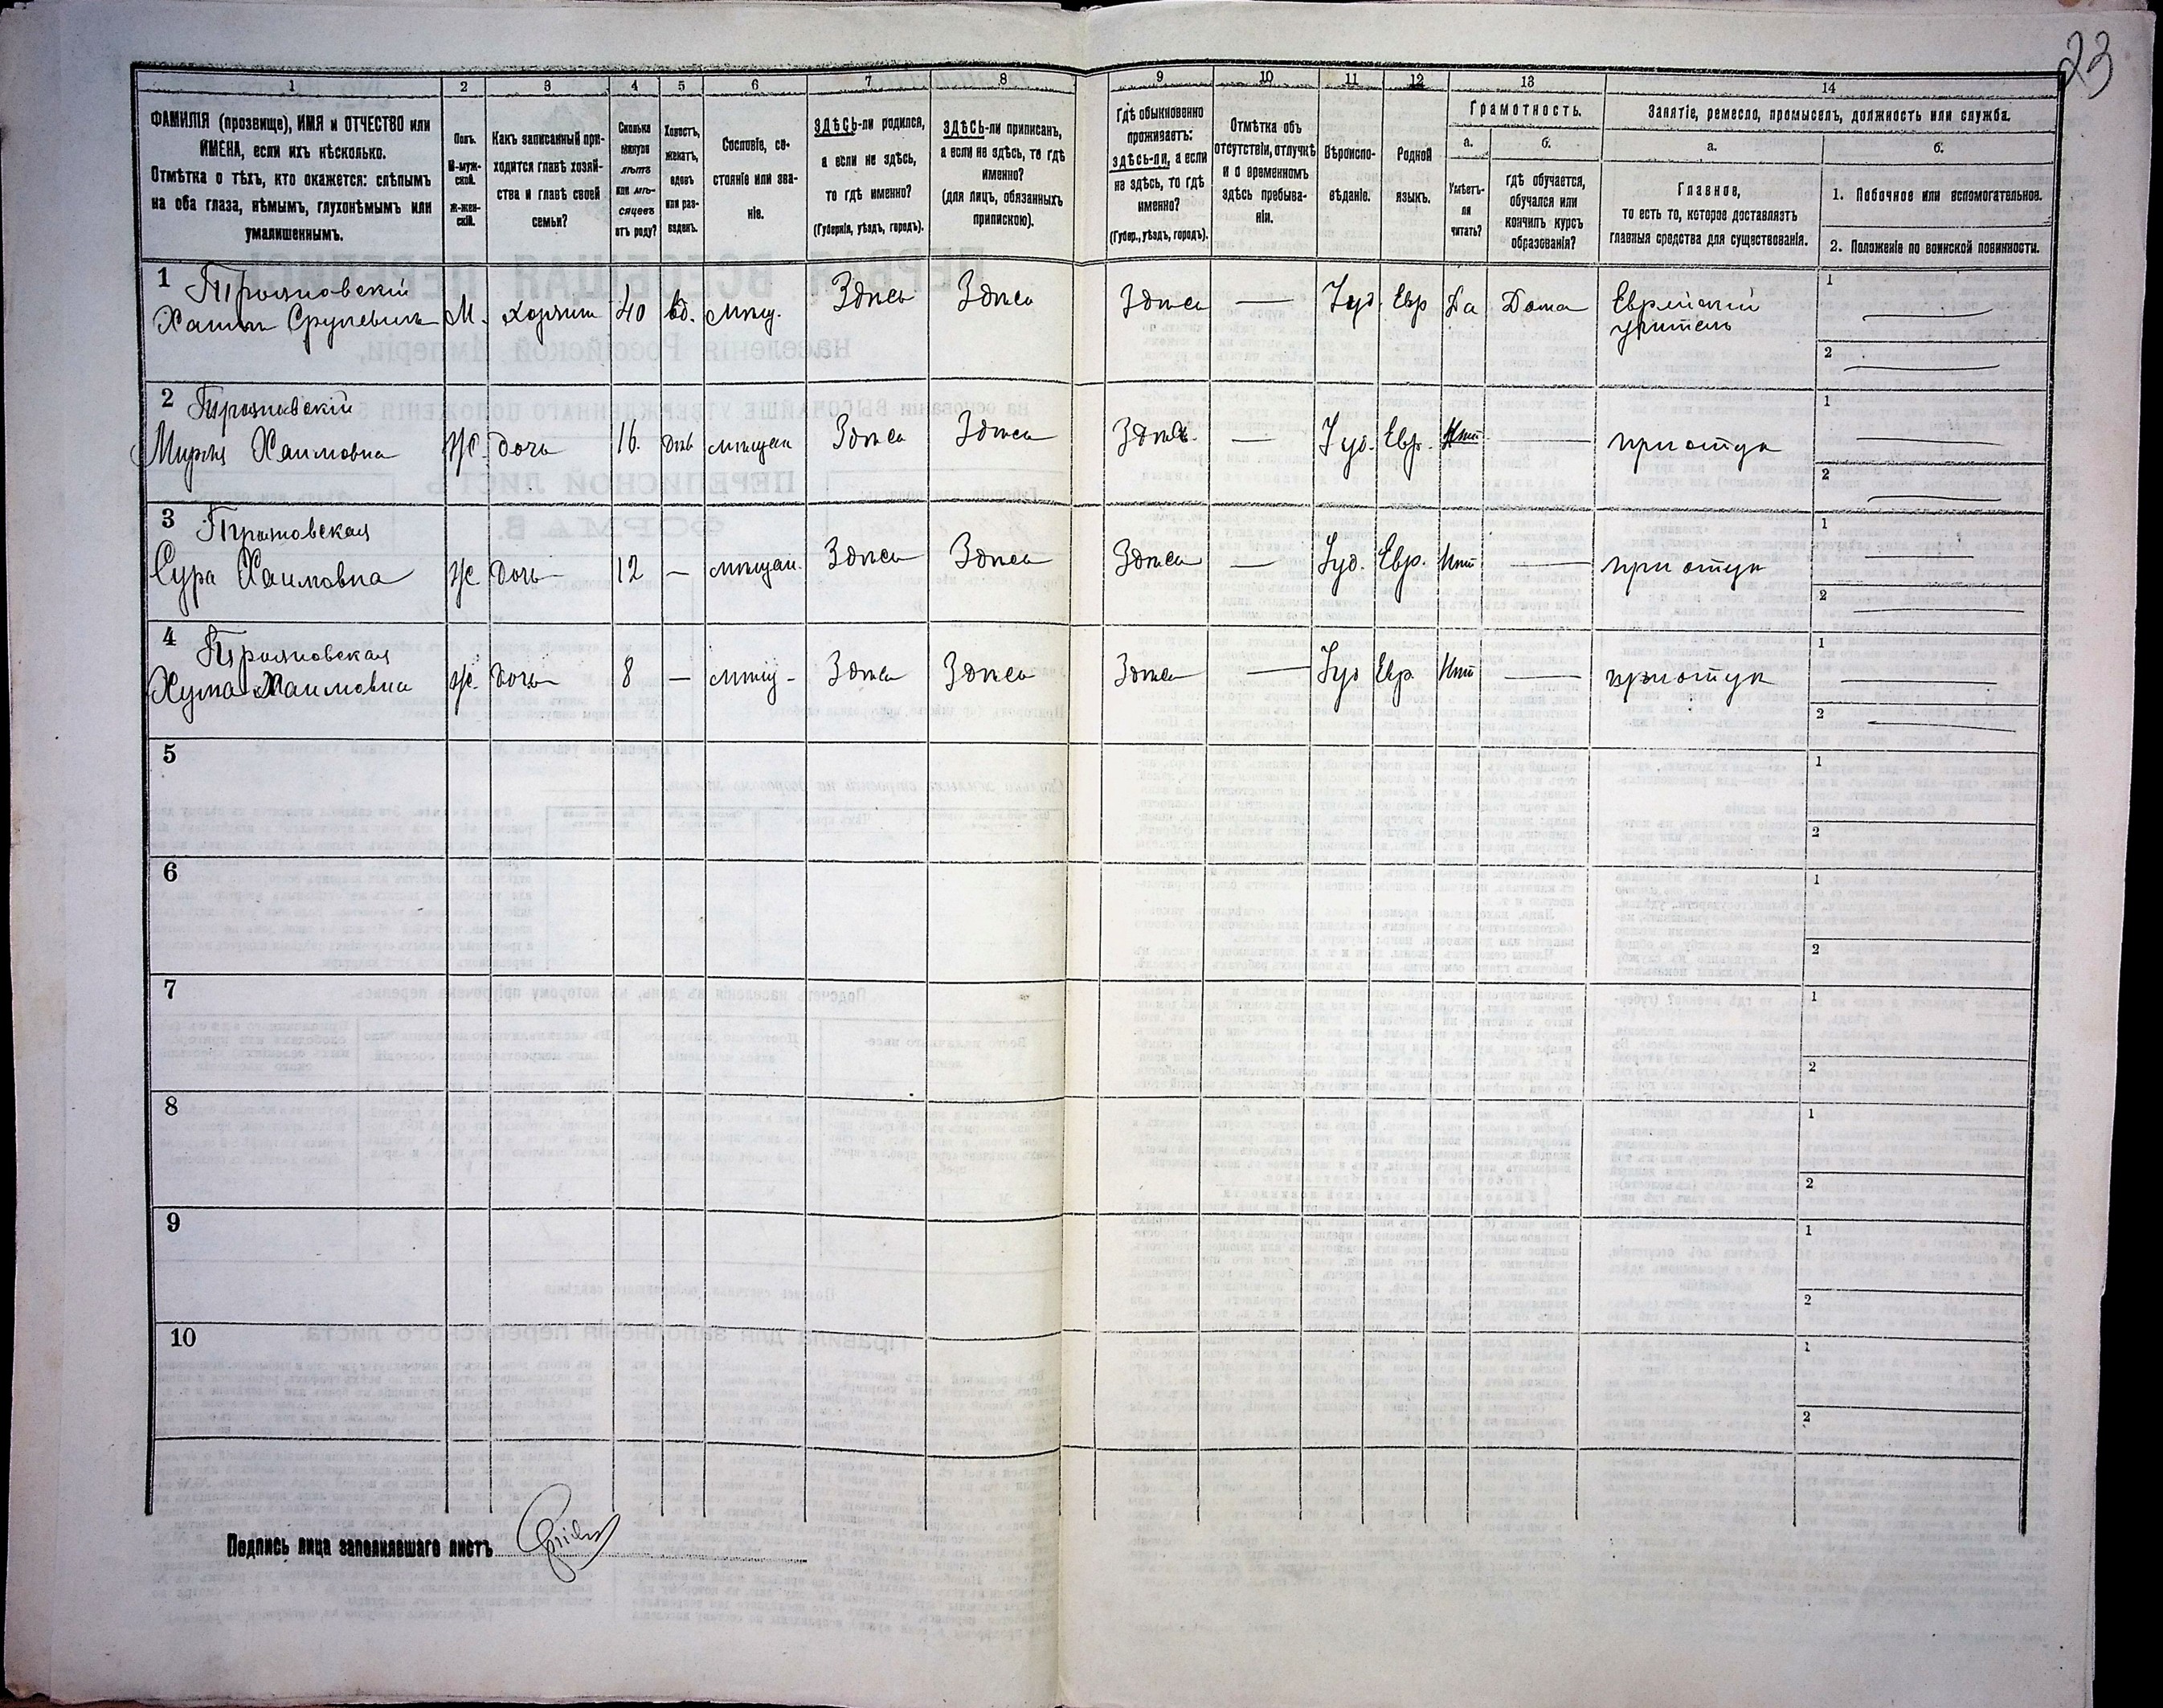 23
1 2 3 4 5 6 7 8 9 10 11 12 13 14
ФАМИЛІЯ (прозвище), ИМЯ и ОТЧЕСТВО или
ИМЕНА, если ихъ нѣсколько.
Отмѣтка о тѣхъ, кто окажется: слѣпымъ
на оба глаза, нѣмымъ, глухонѣмымъ или
умалишеннымъ.
Полъ.
М-муж-
ской.
Ж-жен-
скій.
Какъ записанный при-
ходится главѣ хозяй-
ства и главѣ своей
семьи?
Сколько
минуло
лѣтъ
или мѣ-
сяцевъ
отъ роду?
Холостъ,
женатъ,
вдовъ
или раз-
веденъ.
Сословіе, со-
стояніе или зва-
ніе.
ЗДѢСЬ-ли родился,
а если не здѣсь,
то гдѣ именно?
(Губернія, уѣздъ, городъ).
ЗДѢСЬ-ли приписанъ,
а если не здѣсь, то гдѣ
именно?
(для лицъ, обязанныхъ
припискою).
Гдѣ обыкновенно
проживаетъ:
здѣсь-ли, а если
не здѣсь, то гдѣ
именно?
(Губер., уѣздъ, городъ).
Отмѣтка объ
отсутствіи, отлучкѣ
и о временномъ
здѣсь пребыва-
ніи.
Вѣроиспо-
вѣданіе.
Родной
языкъ.
Грамотность.
а.
Умѣетъ-
ли
читать?
б.
гдѣ обучается,
обучался или
кончилъ курсъ
образованія?
Занятіе, ремесло, промыселъ, должность или служба.
а.
Главное,
то есть то, которое доставляетъ
главныя средства для существованія.
б.
1. Побочное или вспомогательное.
2. Положеніе по воинской повинности.
1 Трояновскій
Хаимъ Срулевичъ М. хозяинъ 40 вд. мѣщ. Здѣсь Здѣсь Здѣсь — Іуд. Евр Да Дома Еврейскій
учитель
1 —
2 —
2 Трояновскій
Миркя Хаимовна Ж. дочь 16. дѣв мѣщан Здѣсь Здѣсь Здѣсь. — Іуд. Евр. Нѣт — при отцѣ
1 —
2 —
3 Трояновская
Сура Хаимовна Ж. дочь 12 — мѣщан. Здѣсь Здѣсь Здѣсь — Іуд. Евр. Нѣт — при отцѣ
1 —
2 —
4 Трояновская
Хума Хаимовна Ж. дочь 8 — мѣщ - Здѣсь Здѣсь Здѣсь — Іуд Евр. Нѣт — при отцѣ
1 —
2 —
5
1
2
6
1
2
7
1
2
8
1
2
9
1
2
10
1
2
Подпись лица заполнявшаго листъ